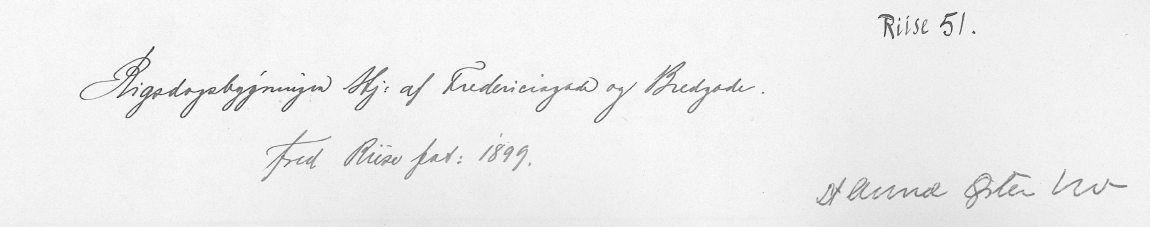 Riise 51.
Rigsdagsbygningen Hj: af Fredericiagade og Bredgade.
Fred Riise fot: 1899.
Øster